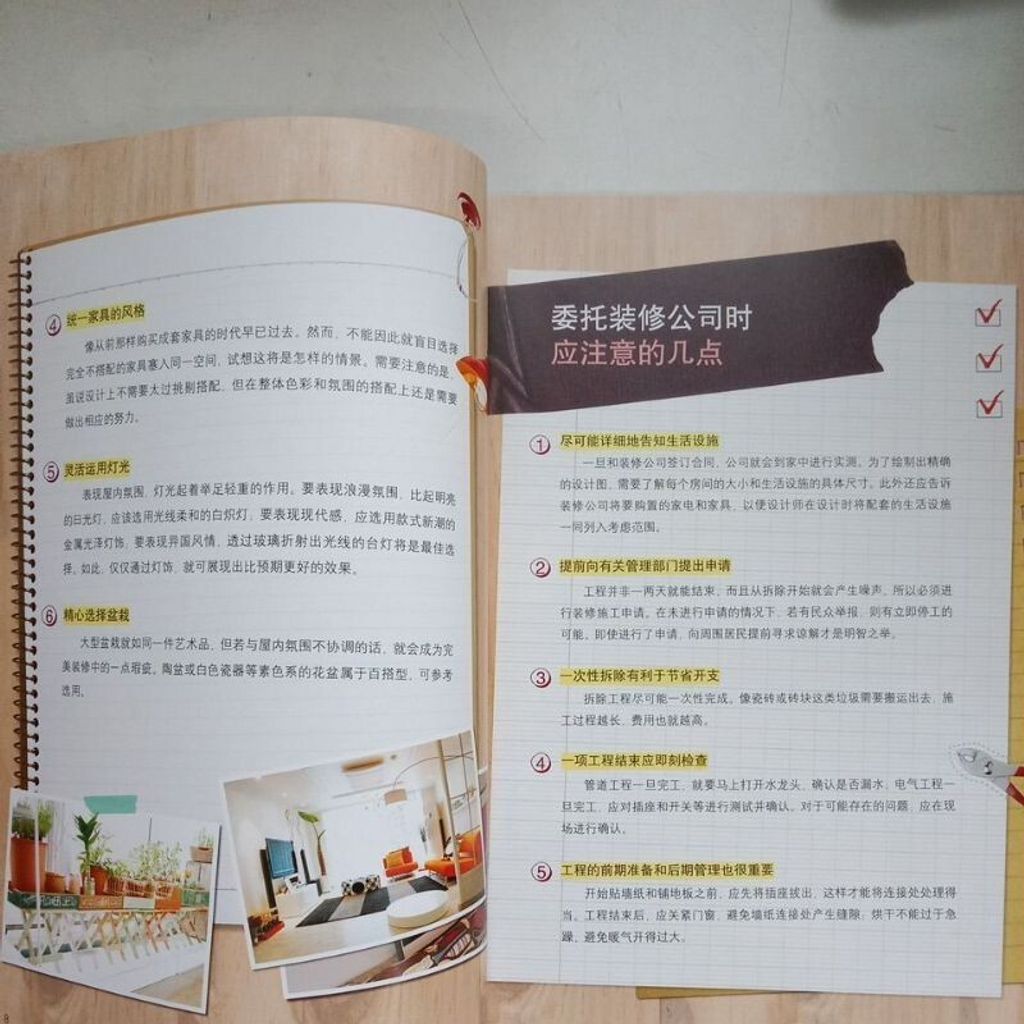 ④ 统一家具的风格
像从前那样购买成套家具的时代早已过去。然而，不能因此就盲目选择
完全不搭配的家具塞入同一空间，试想这将是怎样的情景。需要注意的是，
虽说设计上不需要太过挑剔搭配，但在整体色彩和氛围的搭配上还是需要
做出相应的努力。
⑤ 灵活运用灯光
表现屋内氛围，灯光起着举足轻重的作用。要表现浪漫氛围，比起明亮
的日光灯，应该选用光线柔和的白炽灯，要表现现代感，应选用款式新潮的
金属光泽灯饰，要表现异国风情，透过玻璃折射出光线的台灯将是最佳选
择。如此，仅仅通过灯饰，就可展现出比预期更好的效果。
⑥ 精心选择盆栽
大型盆栽就如同一件艺术品，但若与屋内氛围不协调的话，就会成为完
美装修中的一点瑕疵。陶盆或白色瓷器等素色系的花盆属于百搭型，可参考
选用。
8
委托装修公司时
应注意的几点
① 尽可能详细地告知生活设施
一旦和装修公司签订合同，公司就会到家中进行实测。为了绘制出精确
的设计图，需要了解每个房间的大小和生活设施的具体尺寸。此外还应告诉
装修公司将要购置的家电和家具，以便设计师在设计时将配套的生活设施
一同列入考虑范围。
② 提前向有关管理部门提出申请
工程并非一两天就能结束，而且从拆除开始就会产生噪声，所以必须进
行装修施工申请。在未进行申请的情况下，若有民众举报，则有立即停工的
可能。即使进行了申请，向周围居民提前寻求谅解才是明智之举。
③ 一次性拆除有利于节省开支
拆除工程尽可能一次性完成。像瓷砖或砖块这类垃圾需要搬运出去，施
工过程越长，费用也就越高。
④ 一项工程结束应即刻检查
管道工程一旦完工，就要马上打开水龙头，确认是否漏水，电气工程一
旦完工，应对插座和开关等进行测试并确认。对于可能存在的问题，应在现
场进行确认。
⑤ 工程的前期准备和后期管理也很重要
开始贴墙纸和铺地板之前，应先将插座拔出，这样才能将连接处处理得
当。工程结束后，应关紧门窗，避免墙纸连接处产生缝隙；烘干不能过于急
躁，避免暖气开得过大。